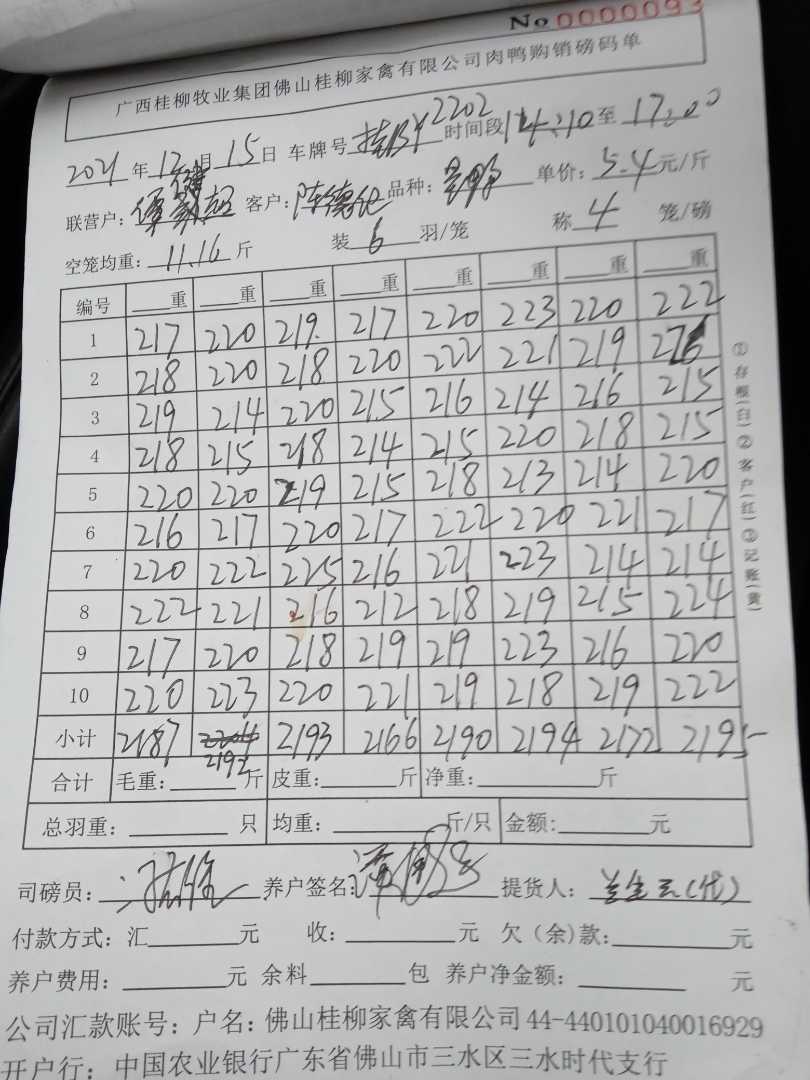 No 0000093
广西桂柳牧业集团佛山桂柳家禽有限公司肉鸭购销磅码单
2021年12月15日 车牌号 Y2202 时间段 14:10 至 17:00
联营户: 客户:陈德 品种: 单价:5.4元/斤
空笼均重:11.16斤 装6羽/笼 称4笼/磅
编号 重 重 重 重 重 重 重 重
1 217 220 219 217 220 223 220 222
2 218 220 218 220 222 221 219 226
3 219 214 220 215 216 214 216 215
4 218 215 218 214 215 220 218 215
5 220 220 219 215 218 213 214 220
6 216 217 220 217 222 220 221 217
7 220 222 225 216 221 223 214 214
8 222 221 216 212 218 219 215 224
9 217 220 218 219 219 223 216 220
10 220 223 220 221 219 218 219 222
小计 2187 2192 2193 2166 2190 2194 2172 2195
合计 毛重: 斤 皮重: 斤 净重: 斤
总羽重: 只 均重: 斤/只 金额: 元
司磅员: 养户签名: 提货人: (代)
付款方式:汇 元 收: 元 欠(余)款: 元
养户费用: 元 余料 包 养户净金额: 元
公司汇款账号:户名:佛山桂柳家禽有限公司 44-440101040016929
开户行:中国农业银行广东省佛山市三水区三水时代支行
①存根(白)②客户(红)③记账(黄)